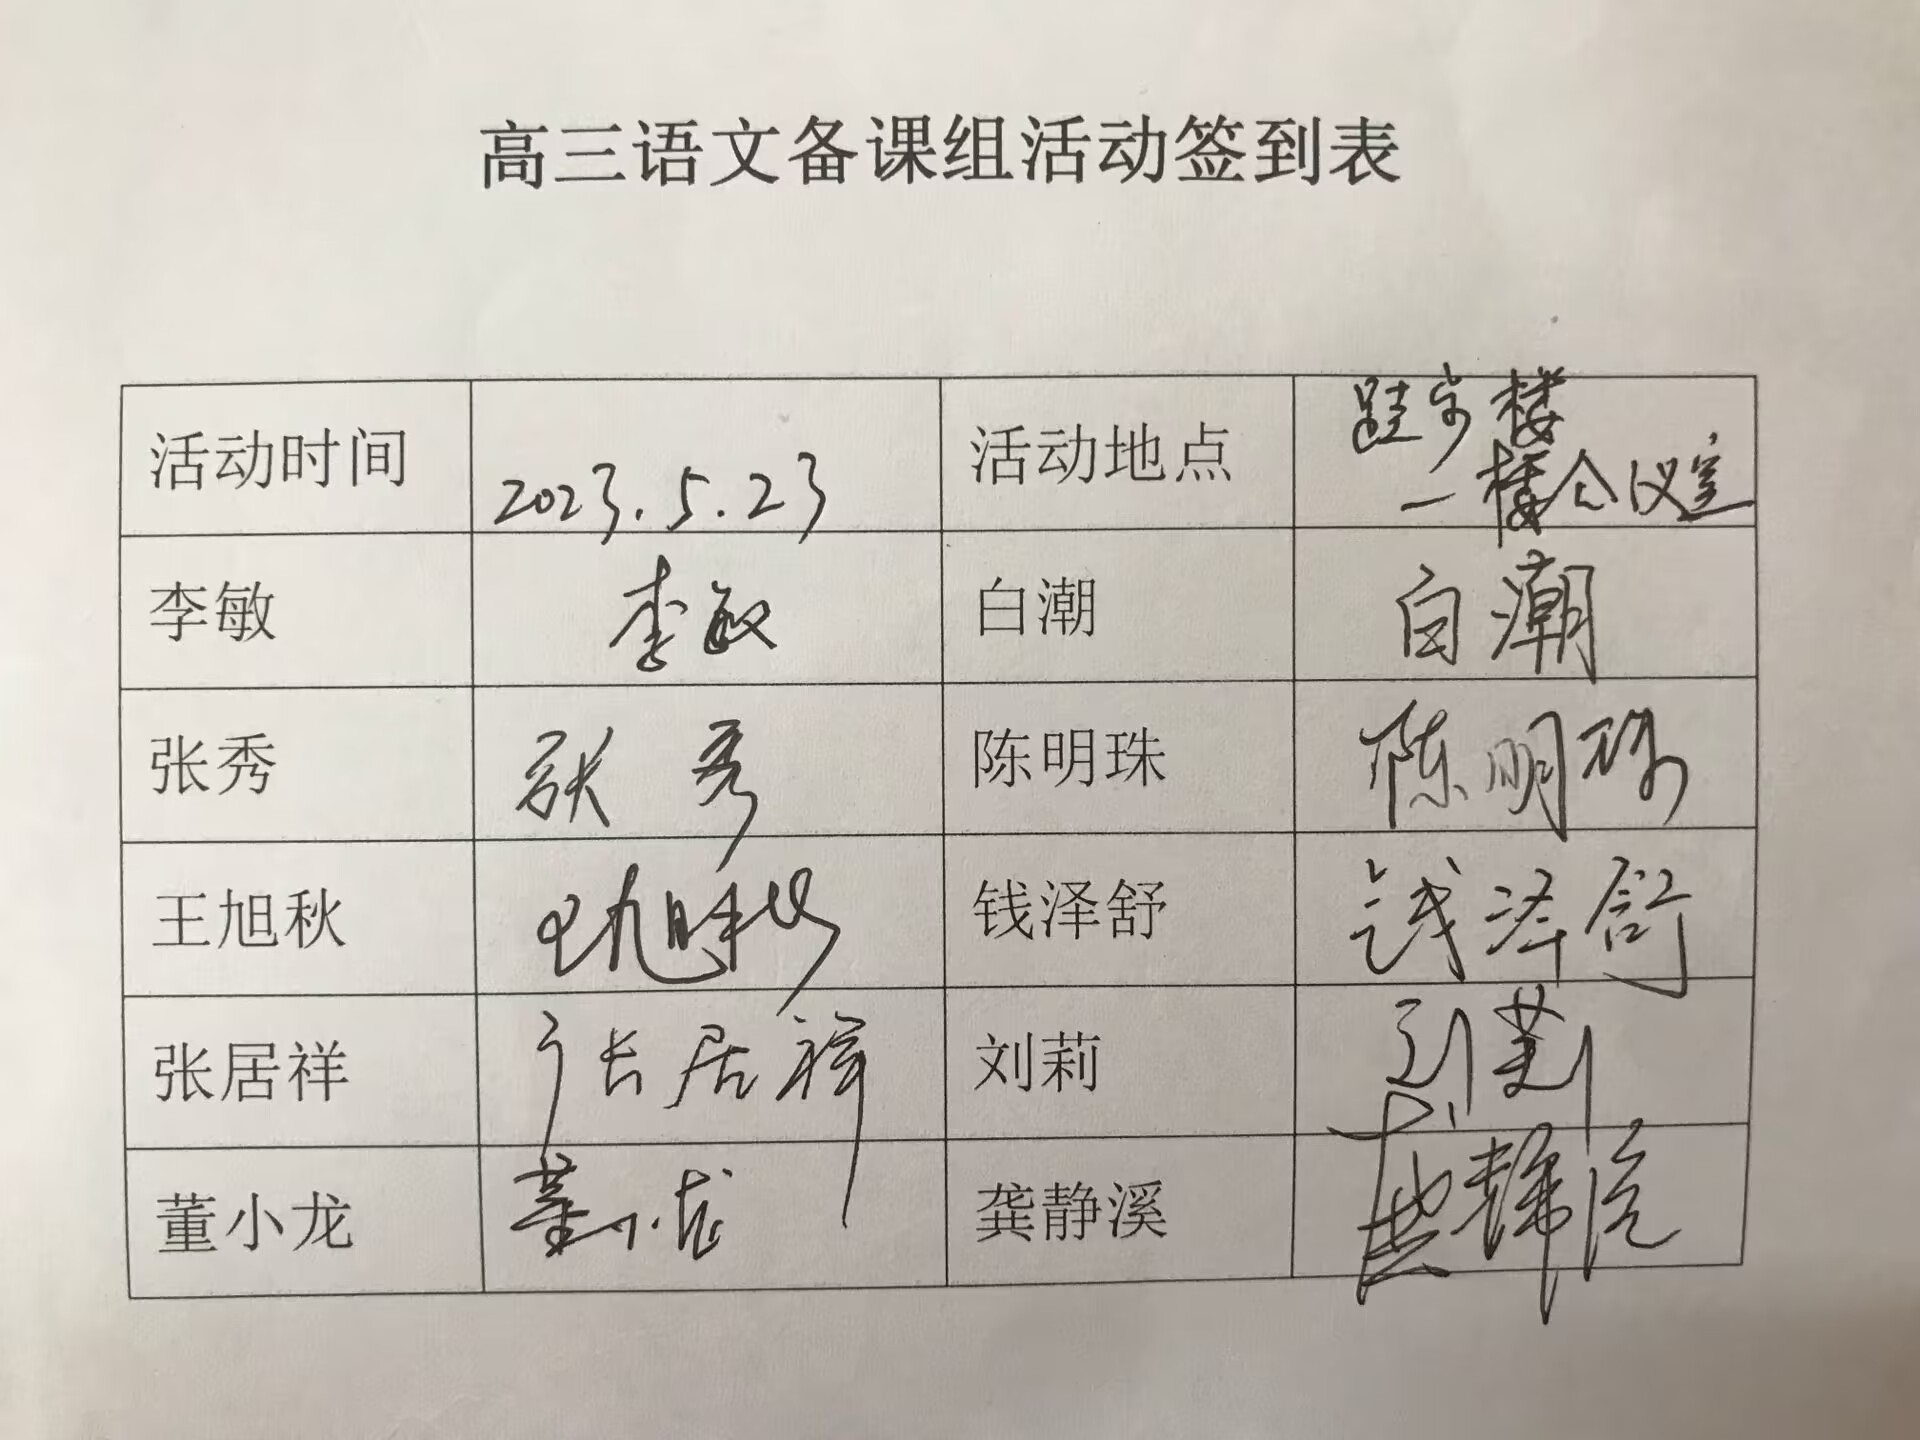 高三语文备课组活动签到表
活动时间 2023.5.23 活动地点 跬步楼
一楼会议室
李敏 李敏 白潮 白潮
张秀 张秀 陈明珠 陈明珠
王旭秋 王旭秋 钱泽舒 钱泽舒
张居祥 张居祥 刘莉 刘莉
董小龙 董小龙 龚静溪 龚静溪